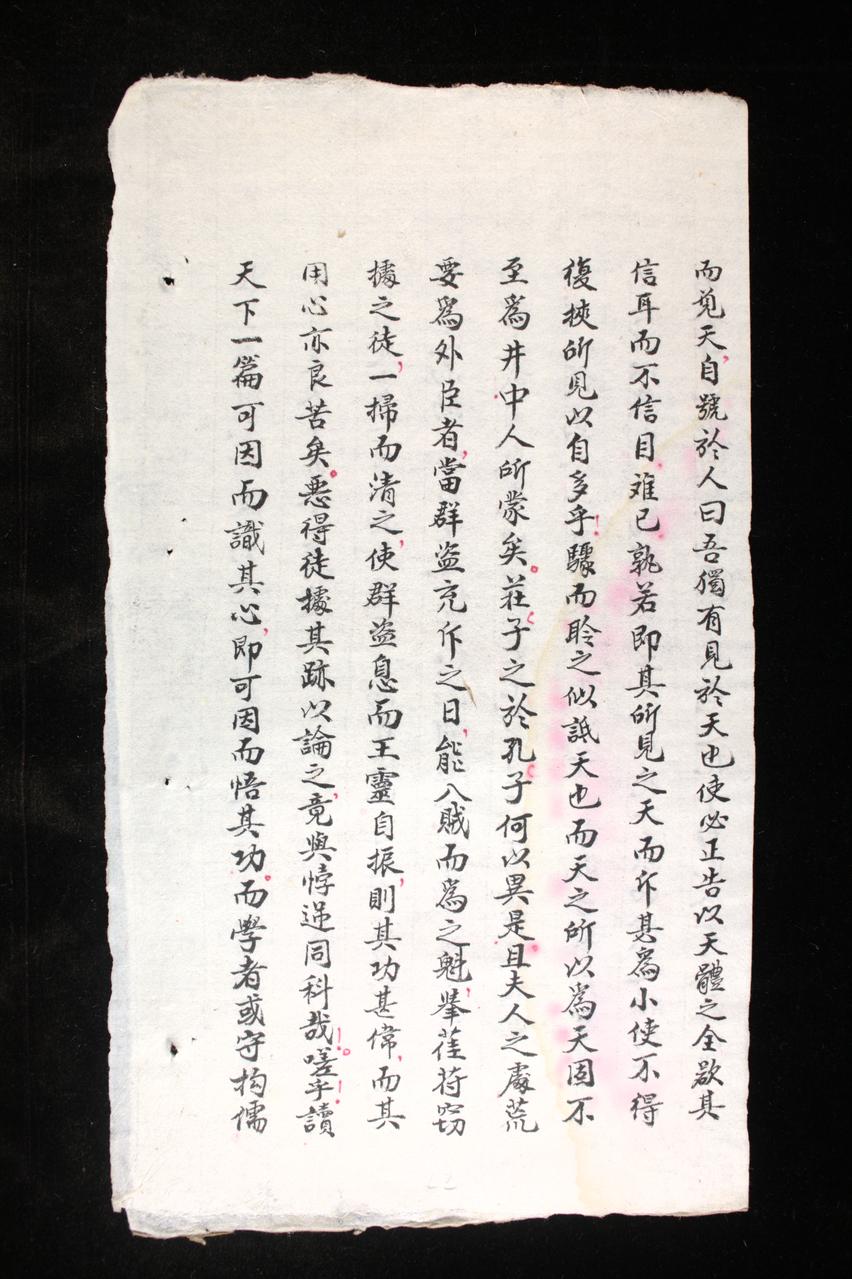 而覓天，自號於人曰吾獨有見於天也使必正告以天體之全欲其
信耳而不信目，难已孰若即其所見之天而斥甚為小使不得
復挾所見以自多乎！驟而聆之似詆天也而天之所以為天固不
至為井中人所蒙矣。莊子之於孔子何以異是。且夫人之處荒
要為外臣者，當群盜充斥之日，能入賊而為之魁，舉萑苻窃
據之徒，一掃而清之，使群盜息而王靈自振，則其功甚偉，而其
用心亦良苦矣。惡得徒據其跡以論之，竟與悖逆同科哉！嗟乎！讀
天下一篇可因而識其心，即可因而悟其功。而學者或守拘儒